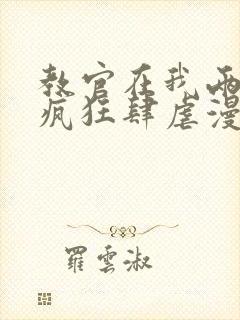 教官在我兩
瘋狂肆虐漫
羅雲淑